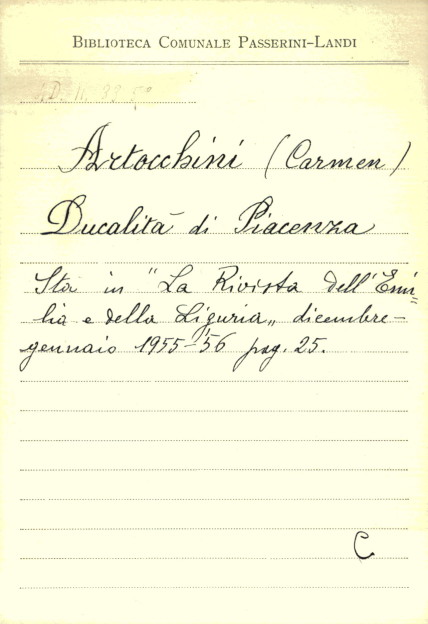 BIBLIOTECA COMUNALE PASSERINI-LANDI
Artocchini (Carmen)
Ducalità di Piacenza
Sta in "La Rivista dell'Emi=
lia e della Liguria„ dicembre-
gennaio 1955-56 pag. 25.
C